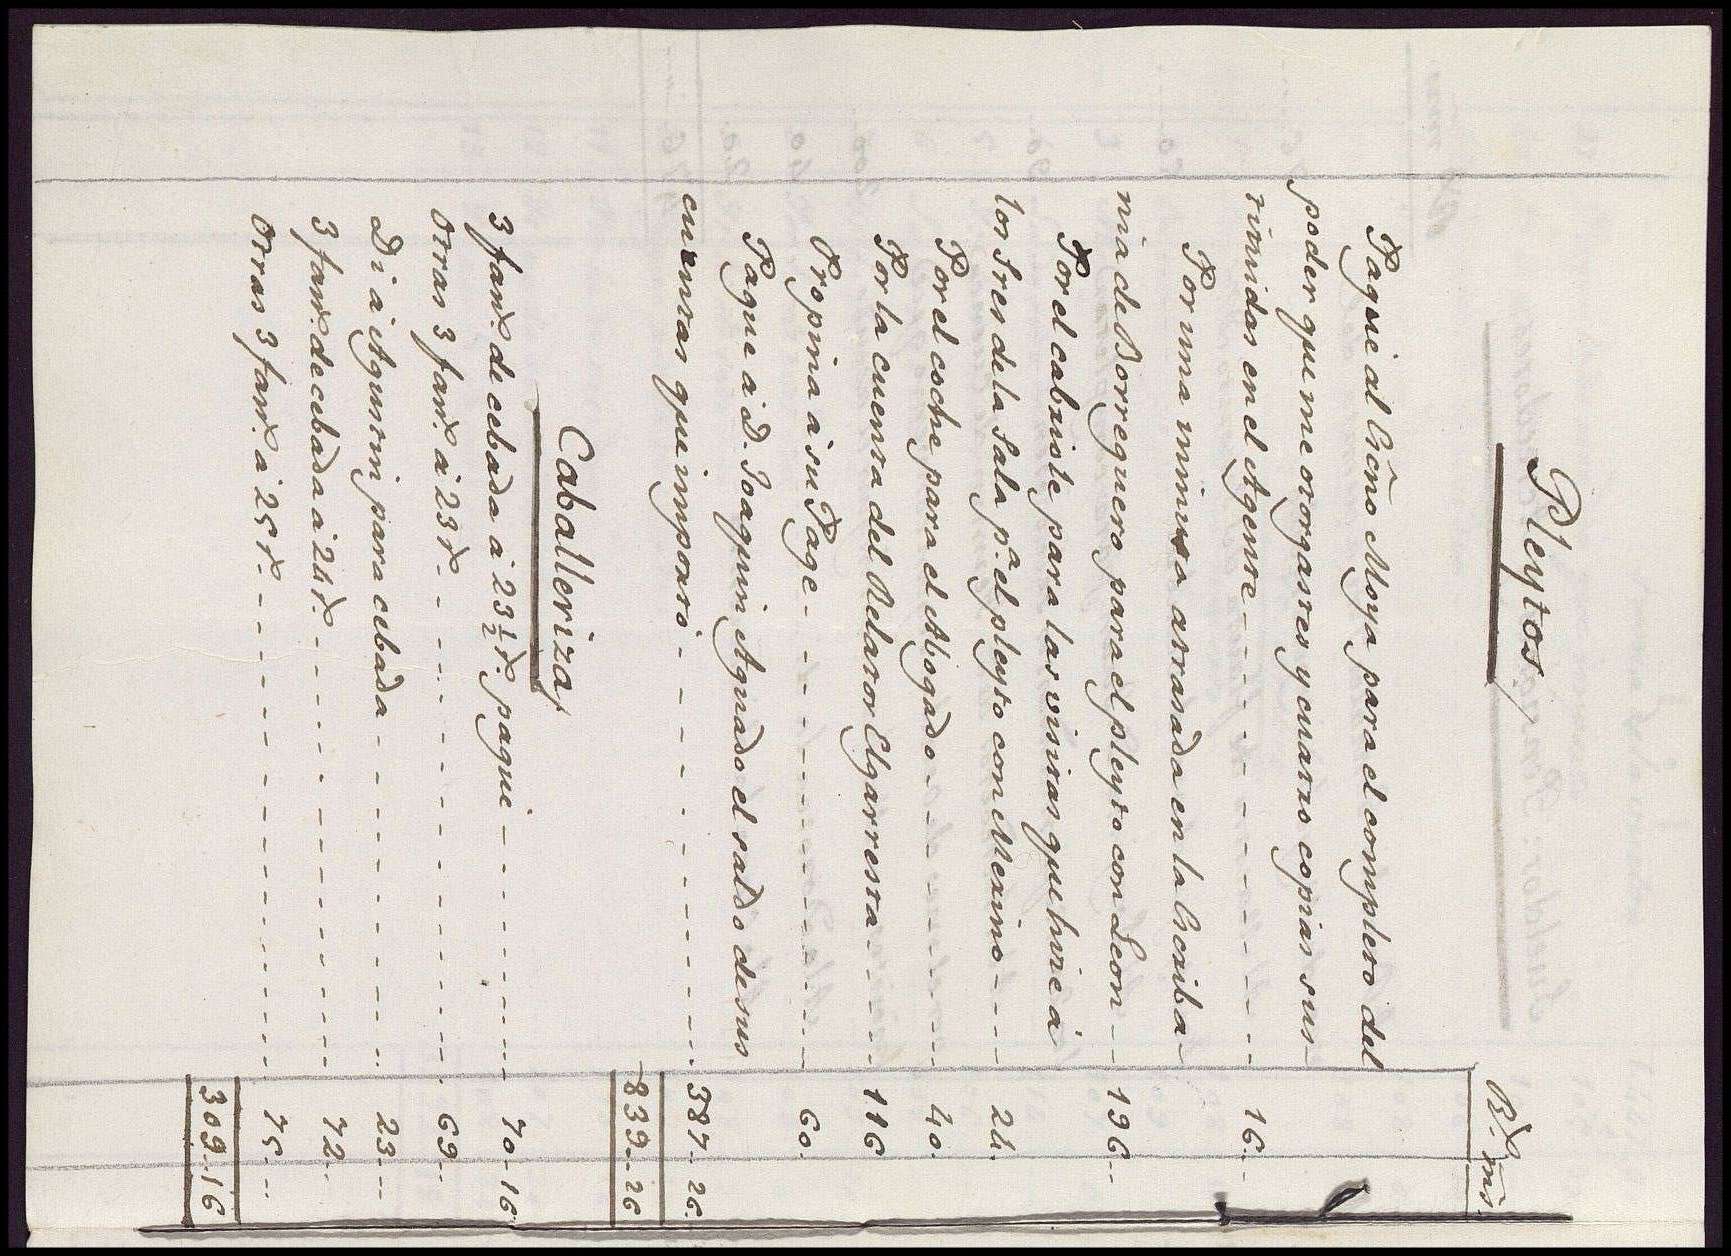 Pleytos,
Rˢ. mrs.
Pague al Escño Moya para el completo del
poder que me otorgastes y cuatro copias sus-
tituidas en el Agente 16..
Por una minuta atrasada en la Escriba-
nia de Borreguero para el pleyto con Leon 196..
Por el cabriole para las visitas que hice á
los Sres de la Sala pª. el pleyto con Merino 24.
Por el coche para el Abogado 40.
Por la cuenta del Relator Elgarresta 116
Propina a su Page 60.
Pague a D. Joaquin Aguado el saldo de sus
cuentas que importó 387.. 26.
839.. 26
Caballeriza,
3 fanˢ. de cebada á 23½ rˢ. pague 70.. 16
Otras 3 fanˢ. á 23 rˢ. 69..
Di á Agustin para cebada 23..
3 fanˢ. de cebada á 24 rˢ. 72..
Otras 3 fanˢ. á 25 rˢ. 75..
309.. 16